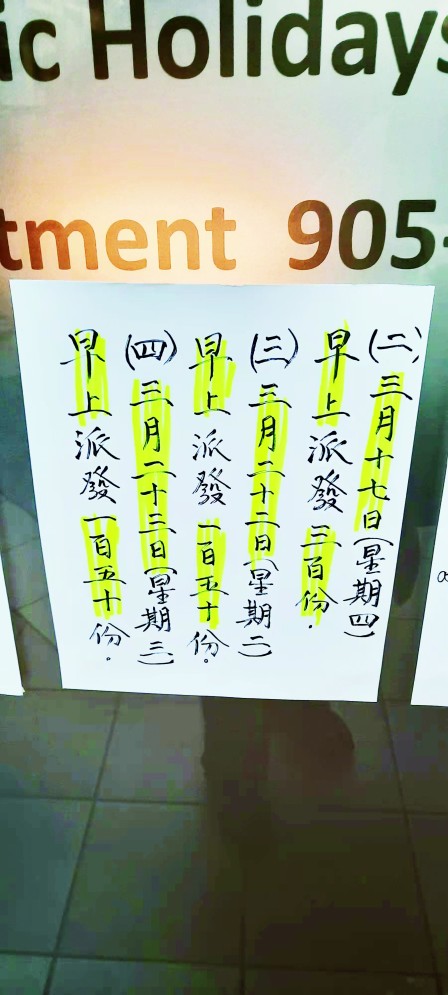 ic Holidays
tment 905-
(二)三月十七日(星期四)
早上派發三百份.
(三)三月二十二日(星期二)
早上派發一百五十份.
(四)三月二十三日(星期三)
早上派發一百五十份.